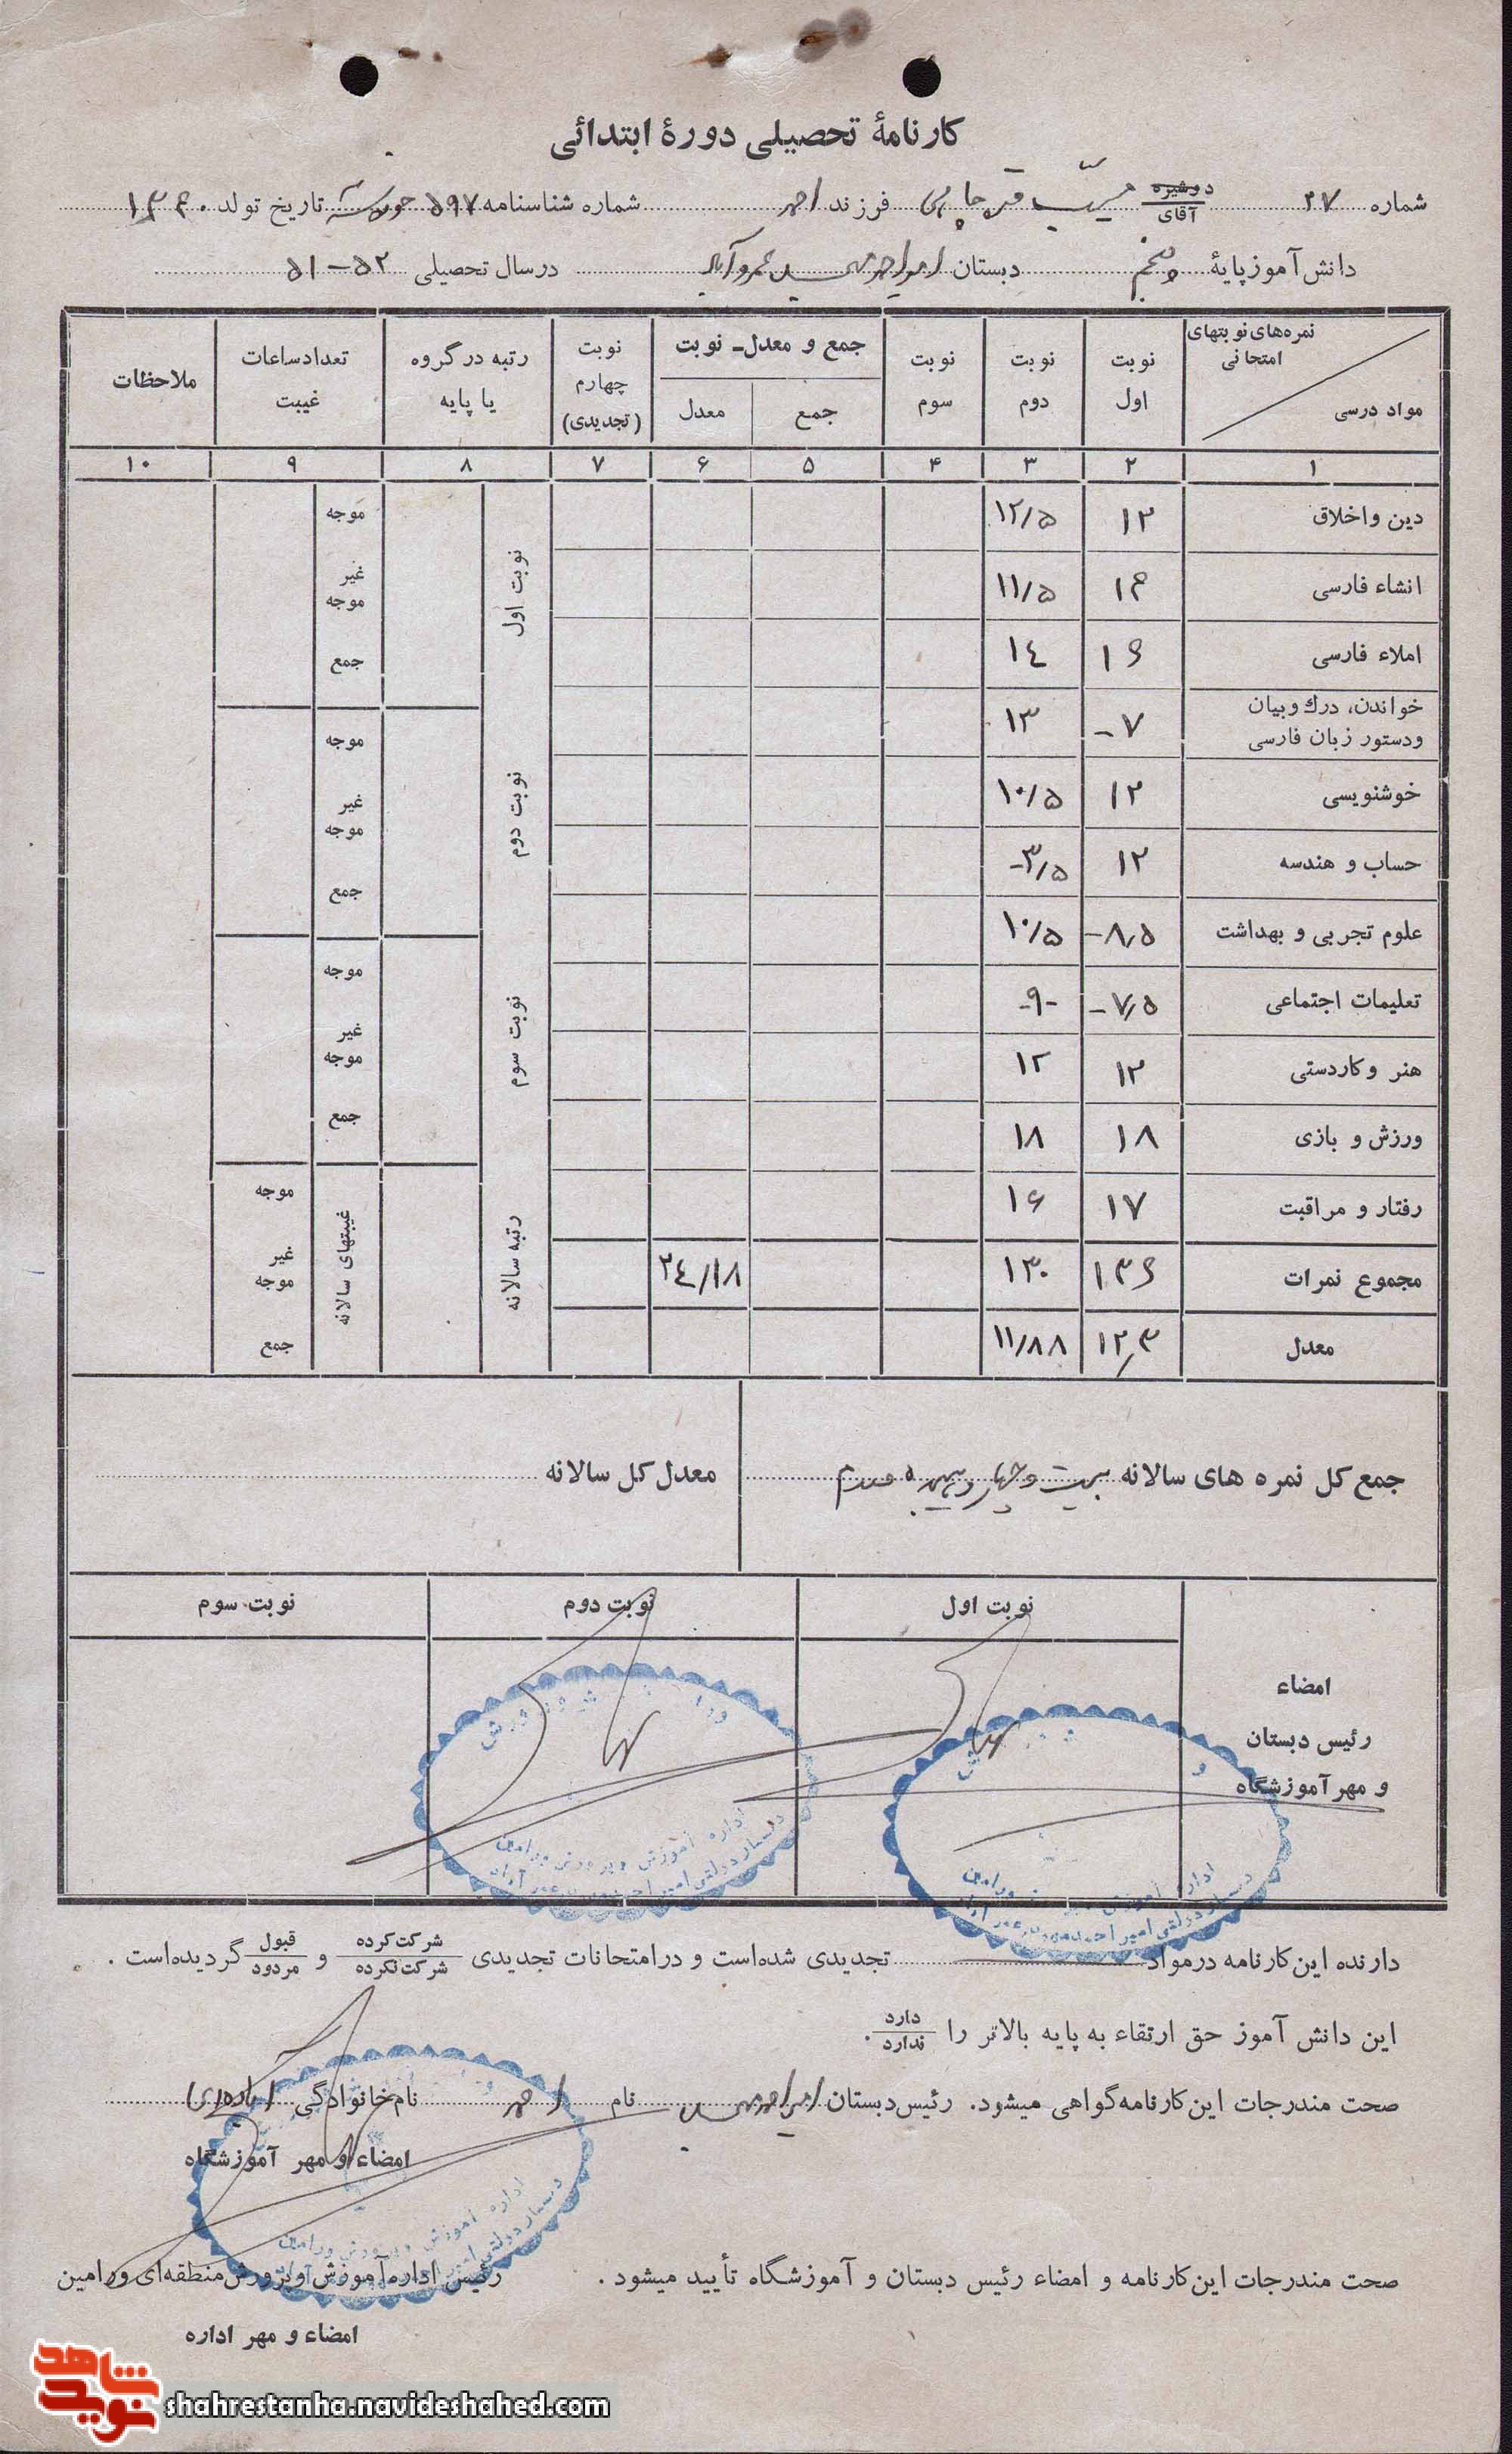 کارنامهٔ تحصیلی دورهٔ ابتدائی
شماره ۲۷ دوشیزه آقای فرزند احمد شماره شناسنامه ۵۹۷ تاریخ تولد
دانش آموز پایهٔ پنجم دبستان امیر احمدی درسال تحصیلی ۵۲-۵۱
نمره‌های نوبتهای امتحانی
مواد درسی
نوبت اول
نوبت دوم
نوبت سوم
جمع و معدل - نوبت
جمع
معدل
نوبت چهارم (تجدیدی)
رتبه درگروه یا پایه
تعداد ساعات غیبت
ملاحظات
۱ ۲ ۳ ۴ ۵ ۶ ۷ ۸ ۹ ۱۰
دین و اخلاق ۱۲ ۱۲/۵
انشاء فارسی ۱۱/۵
املاء فارسی ۱۶ ۱٤
خواندن، درك و بیان ودستور زبان فارسی ۷- ۱۳
خوشنویسی ۱۲ ۱۰/۵
حساب و هندسه ۱۲ ۳/۵-
علوم تجربی و بهداشت ۸/۵- ۱۰/۵
تعلیمات اجتماعی ۷/۵- -۹-
هنر وکاردستی ۱۲ ۱۲
ورزش و بازی ۱۸ ۱۸
رفتار و مراقبت ۱۷ ۱۶
مجموع نمرات ۱۳۶ ۱۳۰ ۲٤/۱۸
معدل ۱۲/۳ ۱۱/۸۸
نوبت اول
نوبت دوم
نوبت سوم
رتبه سالانه
موجه
غیر موجه
جمع
موجه
غیر موجه
جمع
موجه
غیر موجه
جمع
غیبتهای سالانه
موجه
غیر موجه
جمع
جمع کل نمره های سالانه بیست و چهار و هیجده صدم
معدل کل سالانه
نوبت اول
نوبت دوم
نوبت سوم
امضاء
رئیس دبستان
و مهر آموزشگاه
اداره آموزش و پرورش ورامین
دارنده این کارنامه درمواد تجدیدی شده‌است و درامتحانات تجدیدی شرکت کرده شرکت نکرده و قبول مردود گردیده‌است .
این دانش آموز حق ارتقاء به پایه بالاتر را دارد ندارد .
صحت مندرجات این کارنامه گواهی میشود. رئیس دبستان امیر احمدی نام احمد نام خانوادگی
امضاء و مهر آموزشگاه
اداره آموزش و پرورش ورامین
صحت مندرجات این کارنامه و امضاء رئیس دبستان و آموزشگاه تأیید میشود . رئیس اداره آموزش و پرورش منطقه‌ای ورامین
امضاء و مهر اداره
نوید شاهد
shahrestanha.navideshahed.com